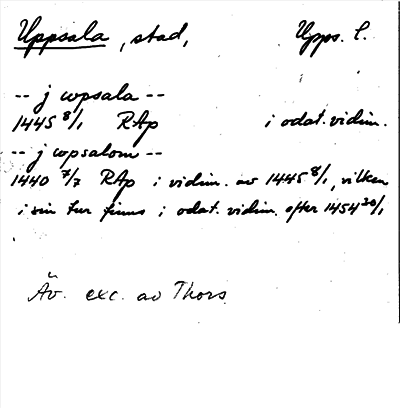 Uppsala, stad, Upps. l.
-- j wpsala --
1445 8/1 RAp i odat. vidim.
-- j wpsalom --
1440 7/7 RAp i vidim. av 1445 8/1, vilken
i sin tur finns i odat. vidim. efter 1454 20/1
Äv. exc. av Thors